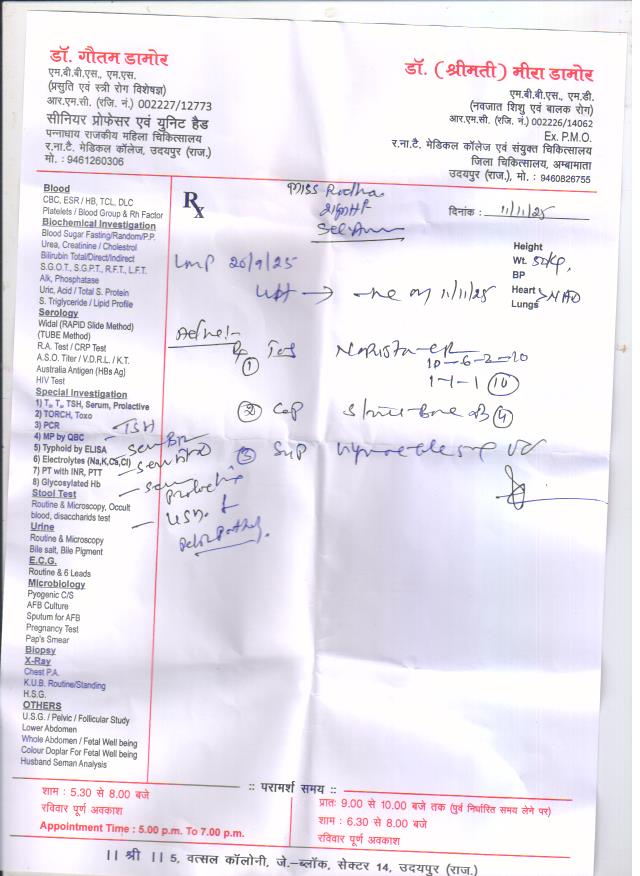 डॉ. गौतम डामोर
एम.बी.बी.एस., एम.एस.
(प्रसुति एवं स्त्री रोग विशेषज्ञ)
आर.एम.सी. (रजि. नं.) 002227/12773
सीनियर प्रोफेसर एवं युनिट हैड
पन्नाधाय राजकीय महिला चिकित्सालय
र.ना.टै. मेडिकल कॉलेज, उदयपुर (राज.)
मो. : 9461260306
डॉ. (श्रीमती) मीरा डामोर
एम.बी.बी.एस., एम.डी.
(नवजात शिशु एवं बालक रोग)
आर.एम.सी. (रजि. नं.) 002226/14062
Ex. P.M.O.
र.ना.टै. मेडिकल कॉलेज एवं संयुक्त चिकित्सालय
जिला चिकित्सालय, अम्बामाता
उदयपुर (राज.), मो. : 9460826755
Blood
CBC, ESR / HB, TCL, DLC
Platelets / Blood Group & Rh Factor
Biochemical Investigation
Blood Sugar Fasting/Random/P.P.
Urea, Creatinine / Cholestrol
Bilirubin Total/Direct/Indirect
S.G.O.T., S.G.P.T., R.F.T., L.F.T.
Alk, Phosphatase
Uric, Acid / Total S. Protein
S. Triglyceride / Lipid Profile
Serology
Widal (RAPID Slide Method)
(TUBE Method)
R.A. Test / CRP Test
A.S.O. Titer / V.D.R.L. / K.T.
Australia Antigen (HBs Ag)
HIV Test
Special Investigation
1) T₃, T₄, TSH, Serum, Prolactive
2) TORCH, Toxo
3) PCR
4) MP by QBC
5) Typhoid by ELISA
6) Electrolytes (Na,K,Ca,Cl)
7) PT with INR, PTT
8) Glycosylated Hb
Stool Test
Routine & Microscopy, Occult
blood, disaccharids test
Urine
Routine & Microscopy
Bile salt, Bile Pigment
E.C.G.
Routine & 6 Leads
Microbiology
Pyogenic C/S
AFB Culture
Sputum for AFB
Pregnancy Test
Pap's Smear
Biopsy
X-Ray
Chest P.A.
K.U.B. Routine/Standing
H.S.G.
OTHERS
U.S.G. / Pelvic / Follicular Study
Lower Abdomen
Whole Abdomen / Fetal Well being
Colour Doplar For Fetal Well being
Husband Seman Analysis
Rx
Miss Radha
दिनांक : 11/11/25
Height
Wt.
BP
Heart
Lungs NAD
LMP 20/9/25
UPT → -ve on 11/11/25
① Tab
10-6-2-10
1-1-1 ⑩
② Cap
③ Syp
- TSH
- USG.
:: परामर्श समय ::
शाम : 5.30 से 8.00 बजे
रविवार पूर्ण अवकाश
Appointment Time : 5.00 p.m. To 7.00 p.m.
प्रातः 9.00 से 10.00 बजे तक (पुर्व निर्धारित समय लेने पर)
शाम : 6.30 से 8.00 बजे
रविवार पूर्ण अवकाश
|| श्री || 5, वत्सल कॉलोनी, जे.-ब्लॉक, सेक्टर 14, उदयपुर (राज.)